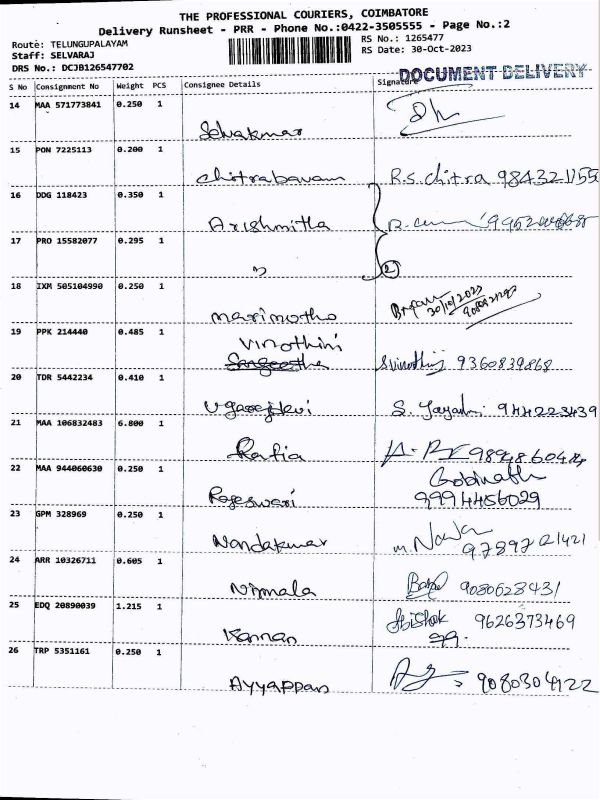 THE PROFESSIONAL COURIERS, COIMBATORE
Delivery Runsheet - PRR - Phone No.:0422-3505555 - Page No.:2
Route: TELUNGUPALAYAM
RS No.: 1265477
Staff: SELVARAJ
RS Date: 30-Oct-2023
DRS No.: DCJB126547702
DOCUMENT DELIVERY
S No Consignment No Weight PCS Consignee Details Signature
14 MAA 571773841 0.250 1
Selvakumar
15 PON 7225113 0.200 1
Chitrabavam R.S. Chitra 984321155
16 DDG 118423 0.350 1
Arishmitha
17 PRO 15582077 0.295 1
" 2
18 IXM 505104990 0.250 1
marimutho 30/10/2023
19 PPK 214440 0.485 1
Vinothini
Sangeetha S.Vinothini 9360839868
20 TDR 5442234 0.410 1
S. 944223439
21 MAA 106832483 6.800 1
Rafia
22 MAA 944060630 0.250 1
Gobinath
Rajeswari 9994456029
23 GPM 328969 0.250 1
Nandakumar
24 ARR 10326711 0.605 1
Nirmala 9080628431
25 EDQ 20890039 1.215 1
Abishek 9626373469
Kannan
26 TRP 5351161 0.250 1
Ayyappan 9080304122